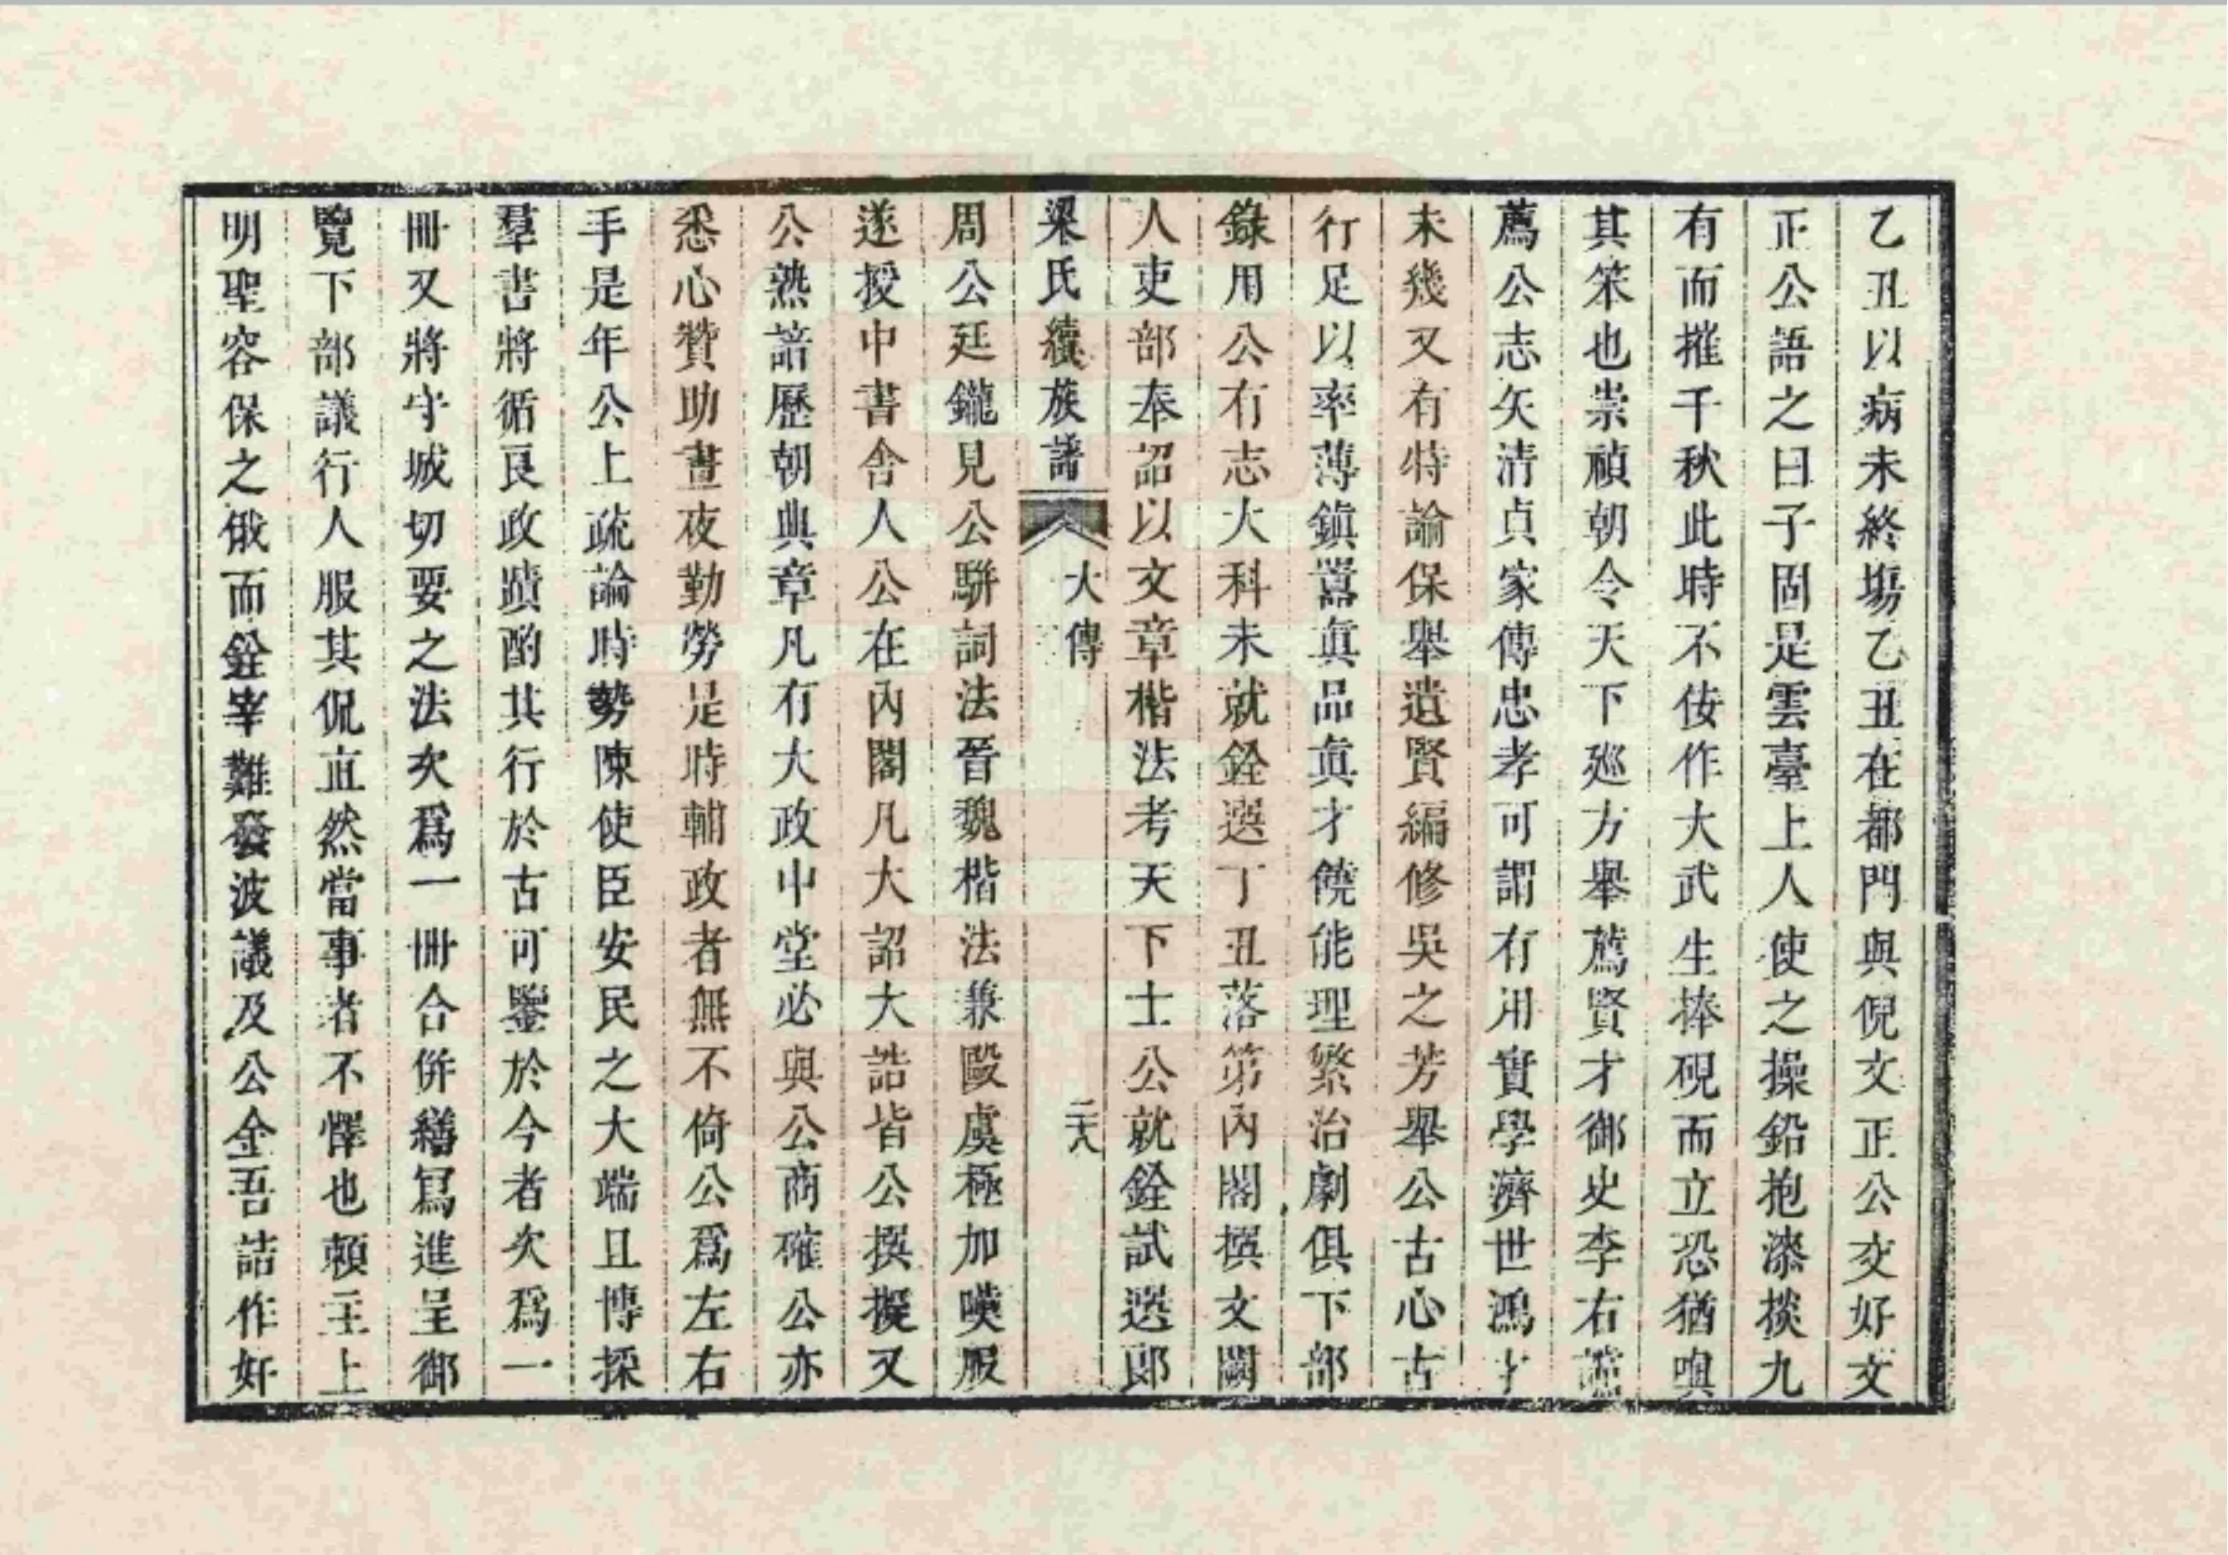 乙丑以病未終塲乙丑在都門與倪文正公交好文
正公語之曰子固是雲臺上人使之操鉛抱漆掞九
有而摧千秋此時不佞作大武生捧硯而立恐猶嗔
其笨也崇禎朝令天下廵方舉薦賢才御史李右讜
薦公志矢清貞家傳忠孝可謂有用實學濟世鴻才
未幾又有特諭保舉遺賢編修吳之芳舉公古心古
行足以率薄鎮囂眞品眞才饒能理繁治劇俱下部
錄用公有志大科未就銓選丁丑落第內閣撰文闕
人吏部奉詔以文章楷法考天下士公就銓試選郎
梁氏續族譜 大傳 二十八
周公廷鑨見公駢詞法晉魏楷法兼歐虞極加嘆服
遂授中書舍人公在內閣凡大詔大誥皆公撰擬又
公熟諳歷朝典章凡有大政中堂必與公商確公亦
悉心贊助晝夜勤勞是時輔政者無不倚公爲左右
手是年公上疏論時勢陳使臣安民之大端且博採
羣書將循良政蹟酌其行於古可鑒於今者次爲一
冊又將守城切要之法次爲一冊合併繕冩進呈御
覽下部議行人服其侃直然當事者不懌也賴主上
明聖容保之俄而銓宰難發波議及公金吾詰作奸